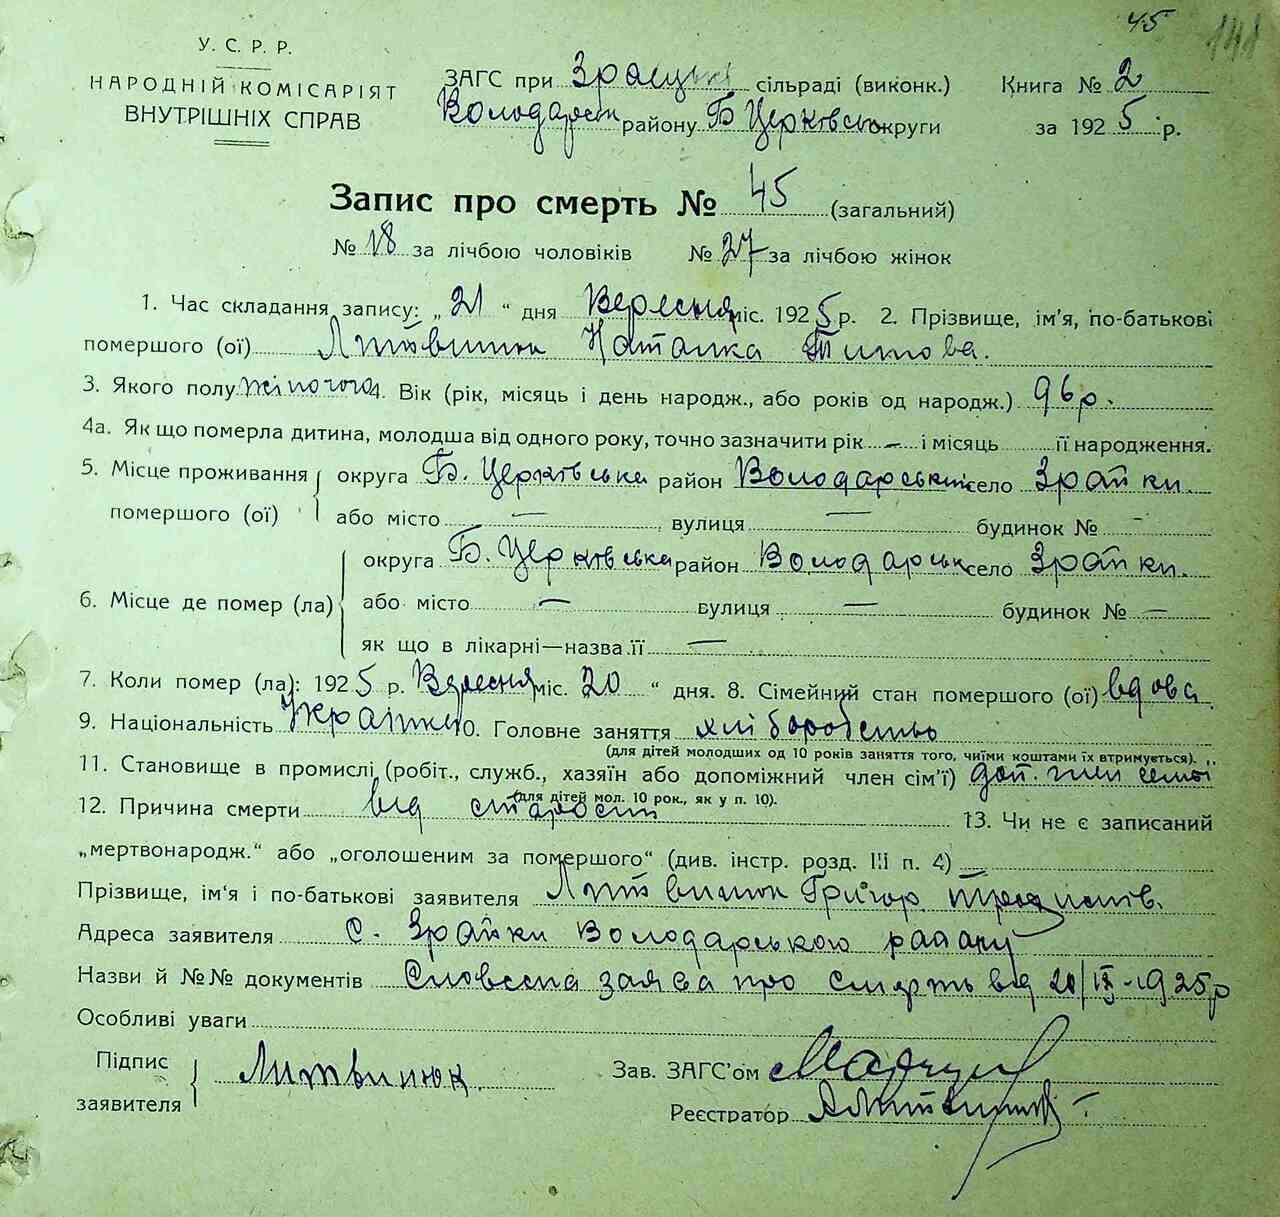 45 141
У. С. Р. Р.
НАРОДНІЙ КОМІСАРІЯТ
ВНУТРІШНІХ СПРАВ
ЗАГС при сільраді (виконк.) Книга № 2
Володарськ району Б Церковськ округи за 1925 р.
Запис про смерть № 45 (загальний)
№ 18 за лічбою чоловіків № 27 за лічбою жінок
1. Час складання запису: „ 21 “ дня Вересня міс. 1925 р. 2. Прізвище, ім'я, по-батькові
помершого (ої) Литвинюк Наталка Титова.
3. Якого полу жіночого 4. Вік (рік, місяць і день народж., або років од народж.) 96 р.
4а. Як що померла дитина, молодша від одного року, точно зазначити рік — і місяць її народження.
5. Місце проживання округа Б. Церковська район Володарський село Зрайки.
помершого (ої) або місто — вулиця — будинок № —
округа Б. Церковська район Володарськ село Зрайки.
6. Місце де помер (ла) або місто — вулиця — будинок № —
як що в лікарні—назва її —
7. Коли помер (ла): 1925 р. Вересня міс. 20 “ дня. 8. Сімейний стан помершого (ої) вдова
9. Національність Українка 10. Головне заняття хліборобство
(для дітей молодших од 10 років заняття того, чиїми коштами їх втримується).
11. Становище в промислі (робіт., служб., хазяїн або допоміжний член сім'ї) доп. член семьї
(для дітей мол. 10 рок., як у п. 10).
12. Причина смерти від старости 13. Чи не є записаний
„мертвонародж.“ або „оголошеним за помершого“ (див. інстр. розд. III п. 4)
Прізвище, ім'я і по-батькові заявителя Литвинюк Григор.
Адреса заявителя с. Зрайки Володарського району
Назви й №№ документів Словесна заява про смерть від 20/IX-1925р
Особливі уваги
Підпис
заявителя Литвинюк
Зав. ЗАГС'ом
Реєстратор